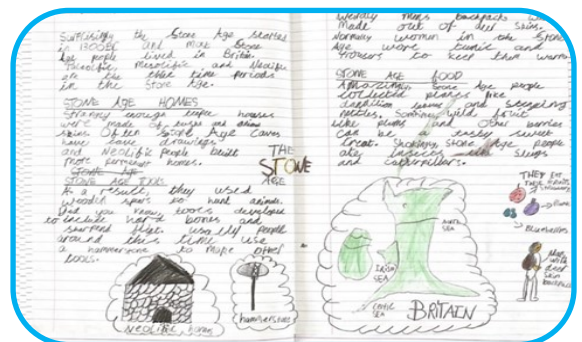 Surprisingly the Stone Age started
in 1300BC and most Stone
Age people lived in Britain.
and Neolific
are the three time periods
in the Stone Age.
STONE AGE HOMES
enough houses
were made of and
skins. Often Stone Age caves
have cave drawings
and Neolific people built
more permanent homes.
STONE AGE
STONE AGE TOOLS
As a result, they used
wooden spers to hunt animals.
Did you know tools developed
to include bones and
flint. people
around this time use
a hammerstone to make other
tools.
THE
STONE
AGE
Neolific homes
hammerstone
mens backpacks
Made out of deer skins.
Normaly women in the Stone
Age wore tunic and
trousers to keep them warm.
STONE AGE FOOD
Amazingly, Stone Age people
collected plants like
dandilion leaves and stinging
nettles. wild fruit
like plums and other berries
can be a tasty sweet
treat. Shokingly Stone Age people
ate insects slugs
and caterpillars.
NORTH
SEA
Irish
SEA
Celtic
SEA
BRITAIN
THEY EAT
THESE
Plums
Blueberries
Man
with
deer
skin
backpack